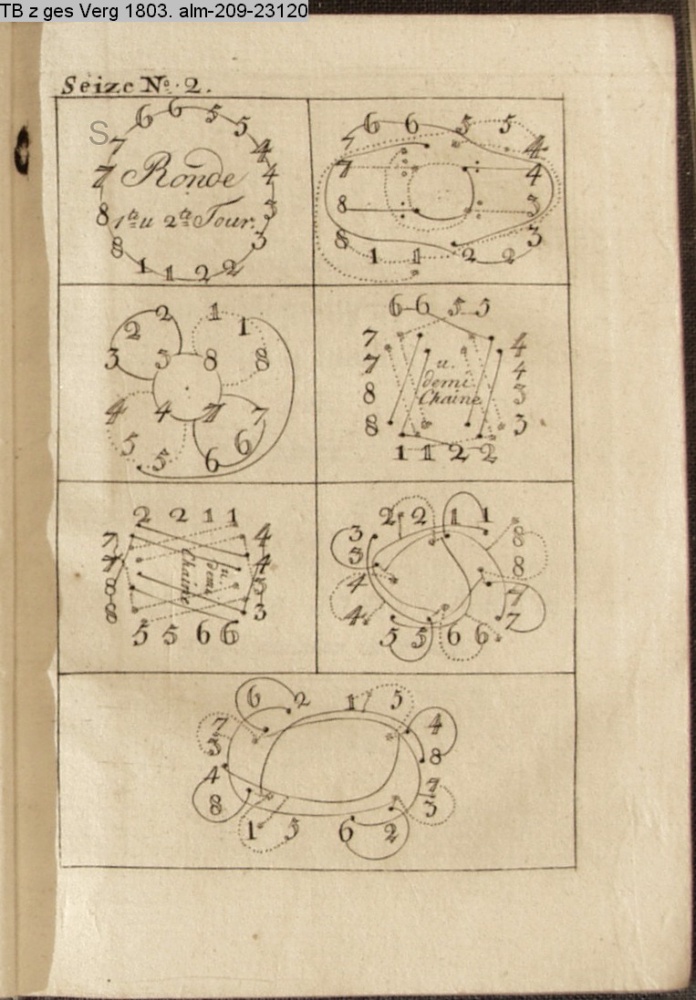 TB z ges Verg 1803. alm-209-23120
Seize No. 2.
6 6 5 5
S 7 4
7 Ronde 4
8 1te u 2te Tour. 3
8 3
1 1 2 2
6 6 5 5
7 4
7 4
8 3
8 3
1 1 2 2
2 2 1 1
3 3 8 8
4 4 7 7
5 5 6 6
6 6 5 5
7 4
7 u. 4
8 demi 3
8 Chaine 3
1 1 2 2
2 2 1 1
7 4
7 u. 4
8 demi 3
8 Chaine 3
5 5 6 6
2 2 1 1
3 8
3 8
4 7
4 7
5 5 6 6
6 2 1 5
7 4
3 8
4 7
8 3
1 5 6 2